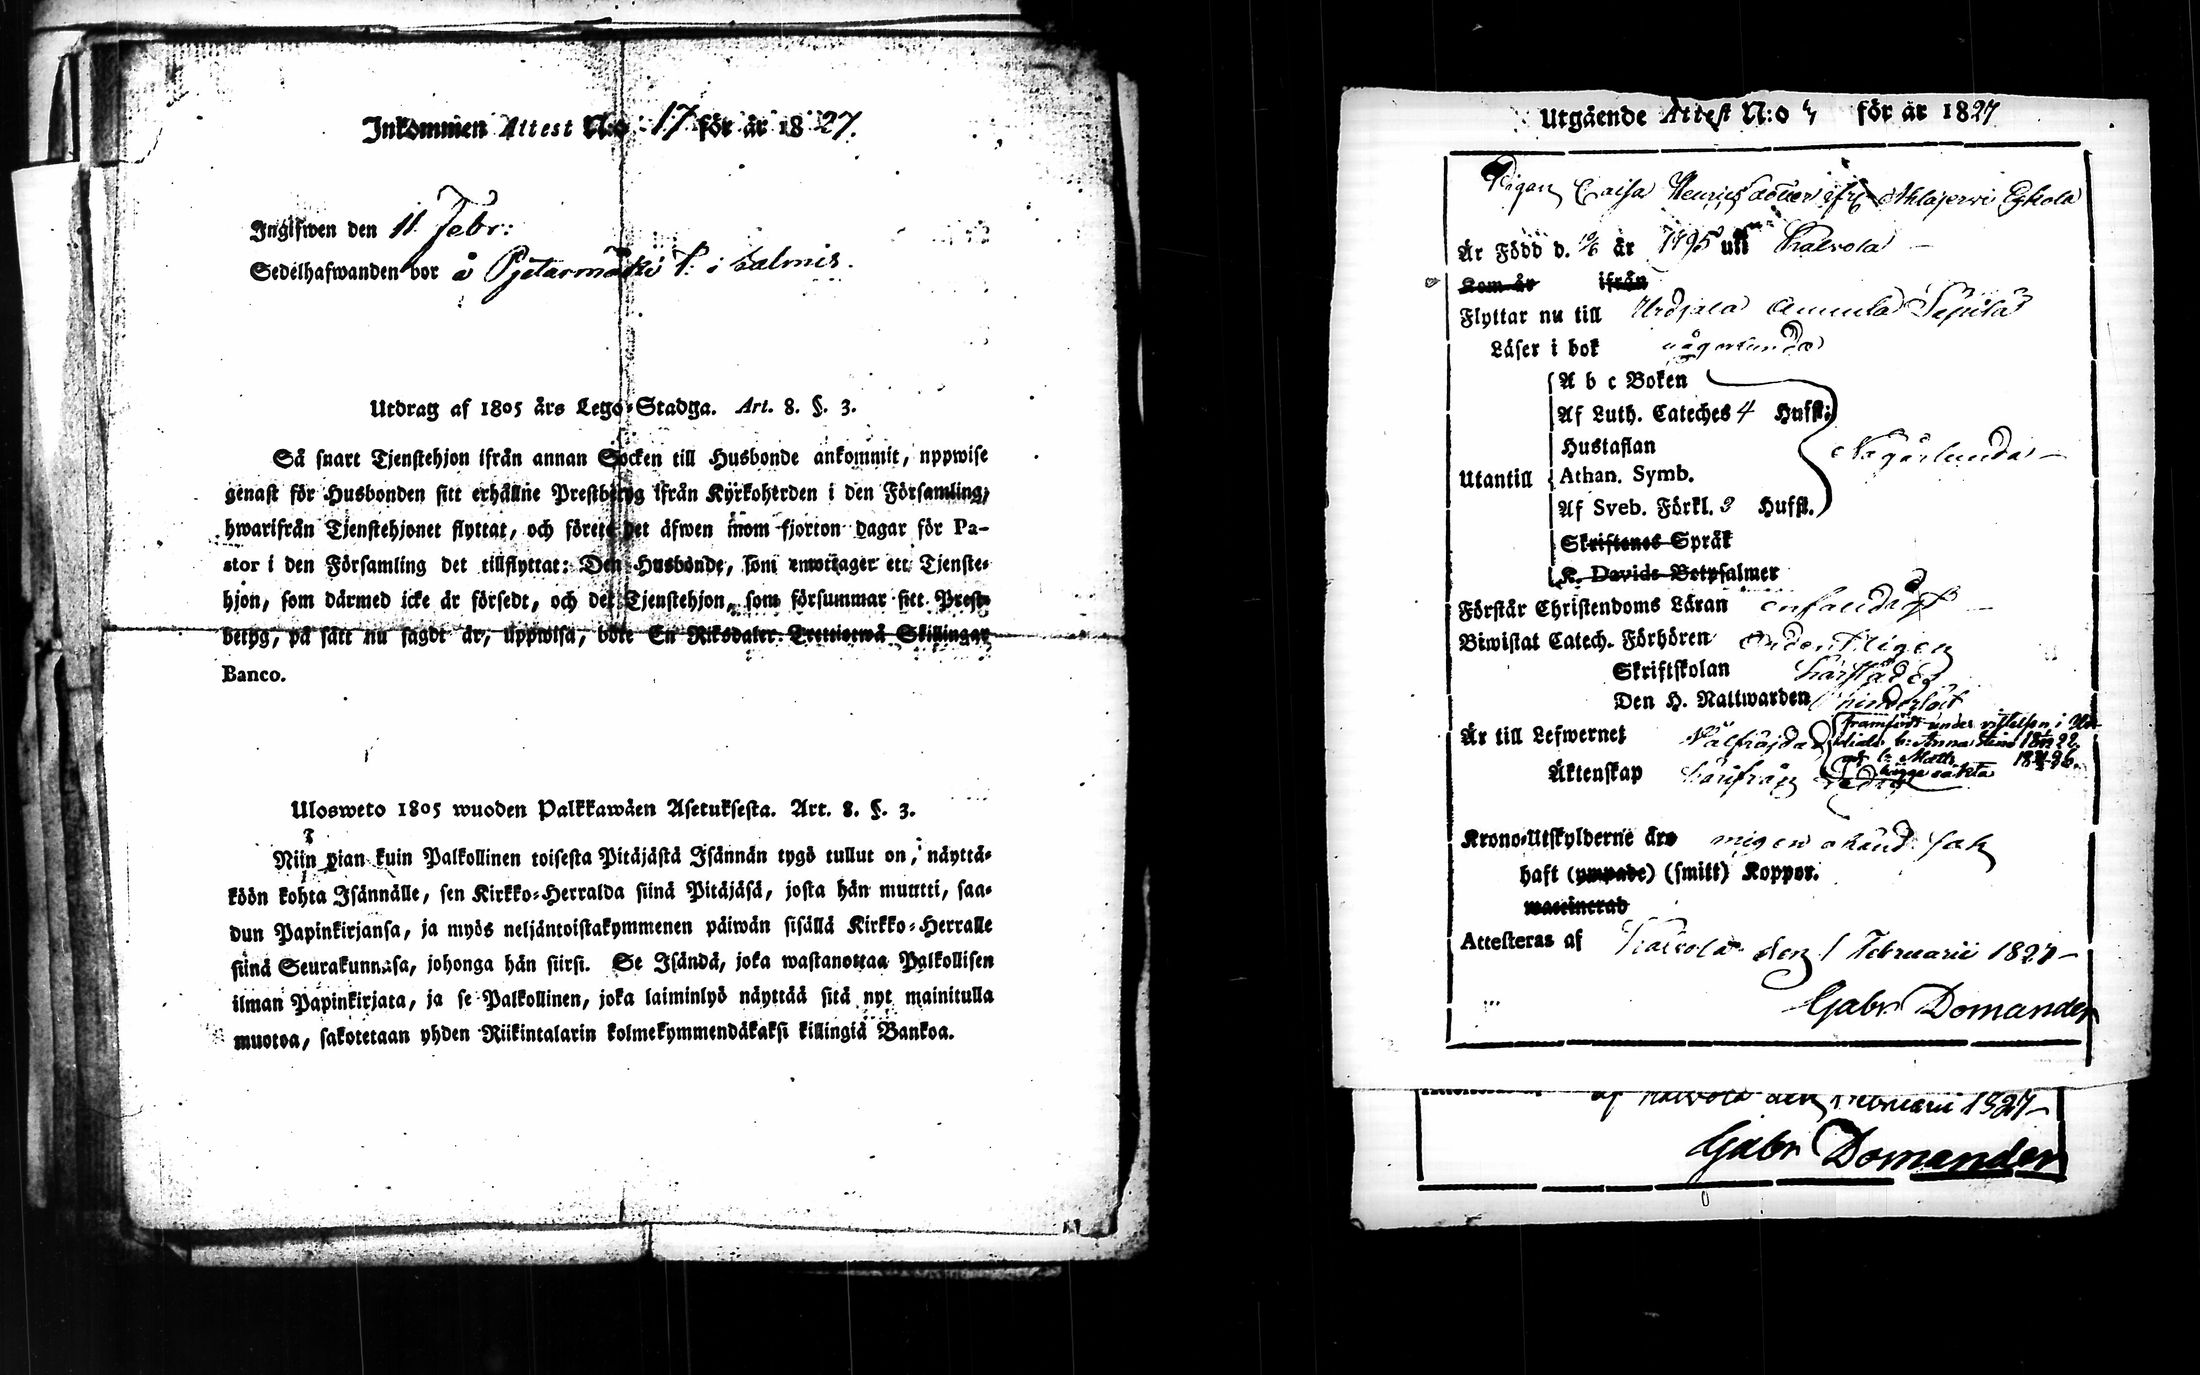 Inkommen Attest N:o 17 för år 1827.
Ingifwen den 11 Febr:
Sedelhafwanden bor å Pjetarmäki T. i Salmis.
Utdrag af 1805 års Lego-Stadga. Art. 8. §. 3.
Så snart Tjenstehjon ifrån annan Socken till Husbonde ankommit, uppwise
genast för Husbonden sitt erhållne Prestbetyg ifrån Kyrkoherden i den Församling,
hwarifrån Tjenstehjonet flyttat, och förete det äfwen inom fjorton dagar för Pa-
stor i den Församling det tillflyttat: Den Husbonde, som emottager ett Tjenste-
hjon, som därmed icke är försedt, och det Tjenstehjon, som försummar sitt Prest-
betyg, på sätt nu sagdt är, uppwisa, böte En Riksdaler Trettiotwå Skillingar
Banco.
Ulosweto 1805 wuoden Palkkawäen Asetuksesta. Art. 8. §. 3.
Niin pian kuin Palkollinen toisesta Pitäjästä Isännän tygö tullut on, näyttä-
köön kohta Isännälle, sen Kirkko-Herralda siinä Pitäjäsä, josta hän muutti, saa-
dun Papinkirjansa, ja myös neljäntoistakymmenen päiwän sisällä Kirkko-Herralle
siinä Seurakunnasa, johonga hän siirsi. Se Isändä, joka wastanottaa Palkollisen
ilman Papinkirjata, ja se Palkollinen, joka laiminlyö näyttää sitä nyt mainitulla
muotoa, sakotetaan yhden Riikintalarin kolmekymmendäkaksi killingiä Bankoa.
Utgående Attest N:o för år 1827
Pigan Caisa Henricsdotter ifr. Ahlajerwi Eskola
Är Född d. år 1795 uti Kalvola
Kom år ifrån
Flyttar nu till Urdjala Annula Sepilä
Läser i bok någorlunda
A b c Boken
Af Luth. Cateches 4 Hufst.
Hustaflan
Utantill Athan. Symb. Någorlunda
Af Sveb. Förkl. 3 Hufst.
Skriftenes Språk
K. Davids Botpsalmer
Förstår Christendoms Läran enfaldigt
Biwistat Catech. Förhören Ordentligen
Skriftskolan härstädes
Den H. Nattwarden
Är till Lefwernet Wälfräjdad
framfödt under vistelsen i Ur-
diala b: Anna Stina 1822.
och b: Matts 1826.
bägge oäkta
Äktenskap härifrån ledig
Krono-Utskylderne äro mig en okänd sak
haft (ympade) (smitt) Koppor.
waccinerad
Attesteras af Kalvola den 1 Februarii 1827
Gabr Domander
af Kalvola den 1 Februarii 1827
Gabr Domander